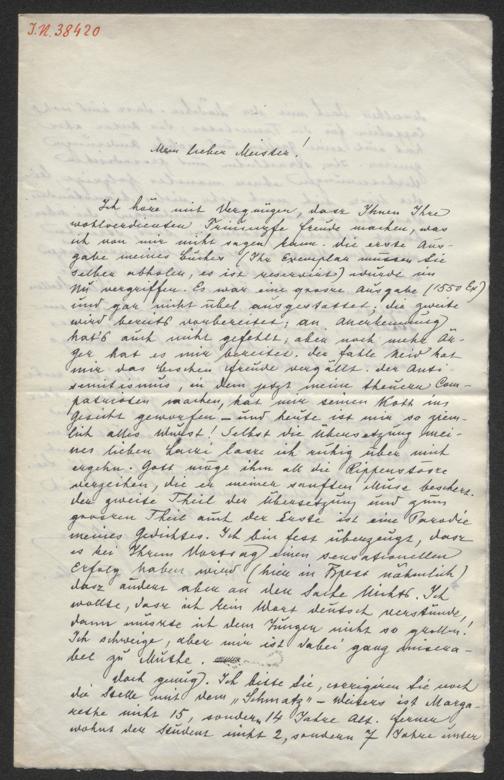 J.N. 38420
Mein lieber Meister!
Ich höre mit Vergnügen, dass Ihnen Ihre
wohlverdienten Triumpfe Freude machen, was
ich von mir nicht sagen kann. Die erste Aus-
gabe meines Buches (Ihr Exemplar müssen Sie
selber abholen, es ist reservirt) wurde im
Nu vergriffen. Es war eine grosse Ausgabe (1550 Ex)
und gar nicht übel ausgestattet; die zweite
wird bereits vorbereitet; an Anerkennung
hat's auch nicht gefehlt; aber noch mehr Är-
ger hat es mir bereitet. Der fahle Neid hat
mir das bischen Freude vergällt. Der Anti-
semitismus, in dem jetzt meine theuern Com-
patrioten machen, hat mir seinen Koth ins
Gesicht geworfen – und heute ist mir so ziem-
lich alles Wurst! Selbst die Übersetzung mei-
nes lieben Laczi lasse ich ruhig über mich
ergehn. Gott möge ihm all die Rippenstösse
verzeihen, die er meiner sanften Muse beschert.
Der zweite Theil der Übersetzung und zum
grossen Theil auch der Erste ist eine Parodie
meines Gedichtes. Ich bin fest überzeugt, dass
es bei Ihrem Vortrag einen sensationellen
Erfolg haben wird (hier in Bpest nähmlich)
dass ändert aber an der Sache Nichts. Ich
wollte, dass ich kein Wort deutsch verstünde,
dann müsste ich dem Jungen nicht so grollen!
Ich schweige, aber mir ist dabei ganz misera-
bel zu Muthe.
Doch genug). Ich bitte Sie, corrigiren Sie noch
die Stelle mit dem „Schmatz" – Weiters ist Marga-
rethe nicht 15, sondern 14 Jahre Alt. Ferner
wohnt der Student nicht 2, sondern 7 Jahre unter